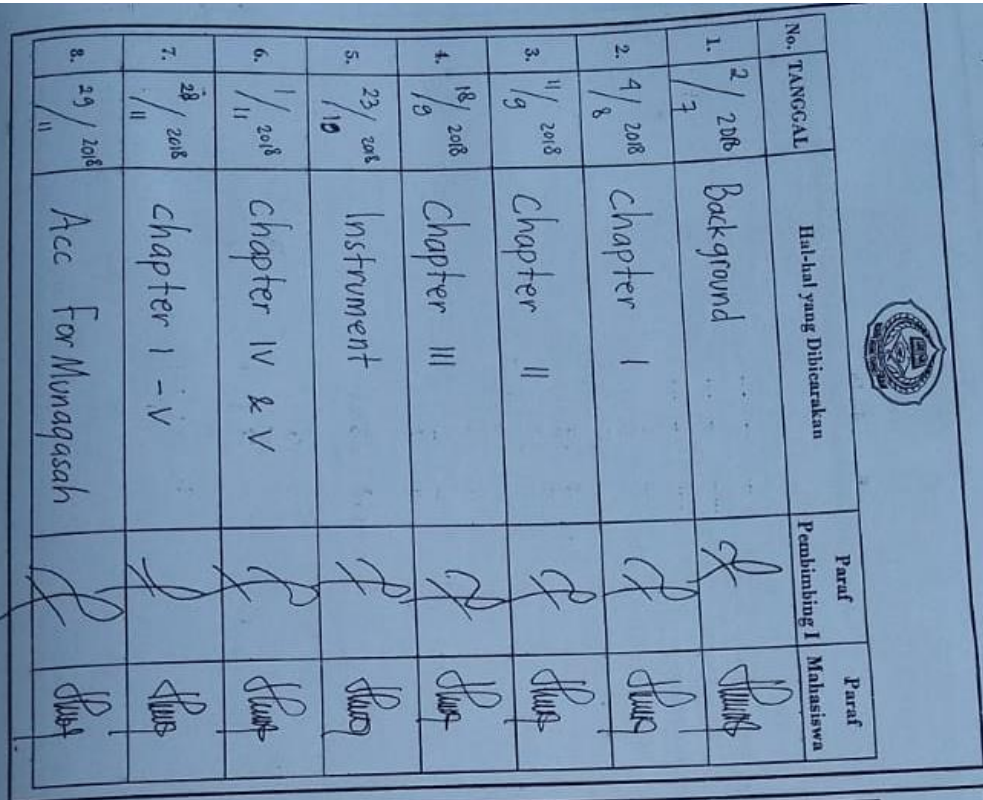 No. TANGGAL Hal-hal yang Dibicarakan Paraf Pembimbing I Paraf Mahasiswa
1. 2/7 2018 Background
2. 4/8 2018 Chapter I
3. 11/9 2018 Chapter II
4. 18/9 2018 Chapter III
5. 23/10 2018 Instrument
6. 1/11 2018 Chapter IV & V
7. 28/11 2018 Chapter I - V
8. 29/11 2018 Acc For Munaqasah